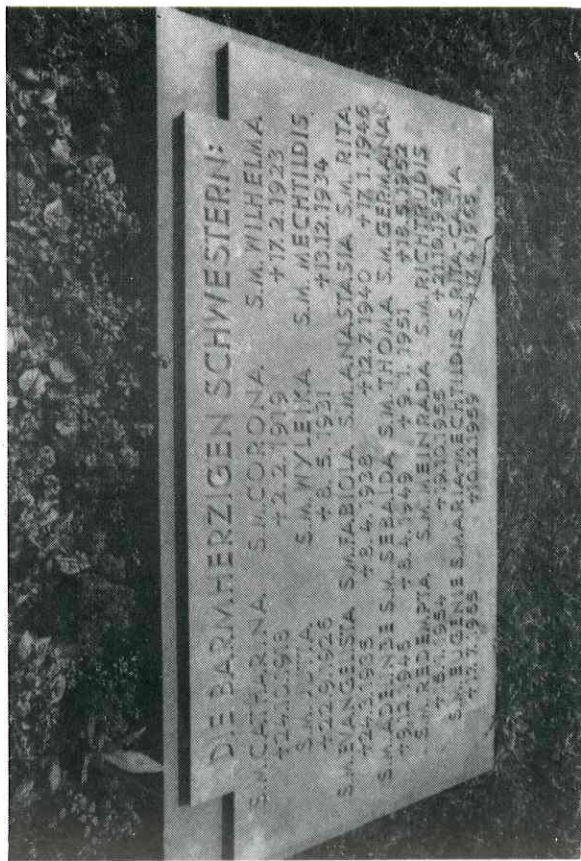 DIE BARMHERZIGEN SCHWESTERN:
S.M.CATHARINA S.M.CORONA S.M.WILHELMA
+24.10.1918 +2.2.1919 +17.2.1923
S.M.JUTTA S.M.WYLEIKA S.M.MECHTILDIS
+22.9.1926 +8.5.1931 +13.12.1934
S.M.EVANGELISTA S.M.FABIOLA S.M.ANASTASIA S.M.RITA
+24.3.1935 +8.4.1938 +12.7.1940 +17.1.1946
S.M.ADELINDE S.M.SEBALDA S.M.THOMA S.M.GERMANA
+9.12.1945 +8.4.1949 +9.1.1951 +18.5.1952
S.M.REDEMPTA S.M.MEINRADA S.M.RICHTRUDIS
+15.1.1954 +9.10.1955
S.M.EUGENIE S.MARIA-MECHTILDIS S.RITA-CASIA
+10.12.1959 +17.4.1965